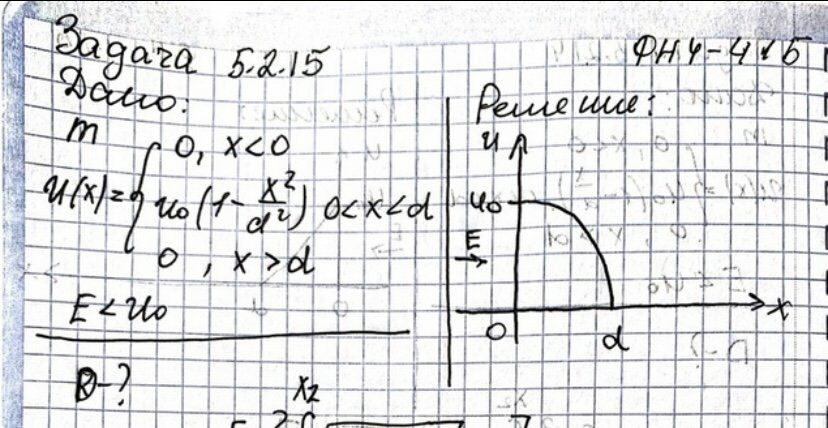 Задача 5.2.15
ФН4-41Б
Дано:
m
U(x)= { 0, x<0
U₀(1 - x²/d²) 0<x<d
0, x>d
E < U₀
D-?
Решение:
U
U₀
E
0
d
x
x₂